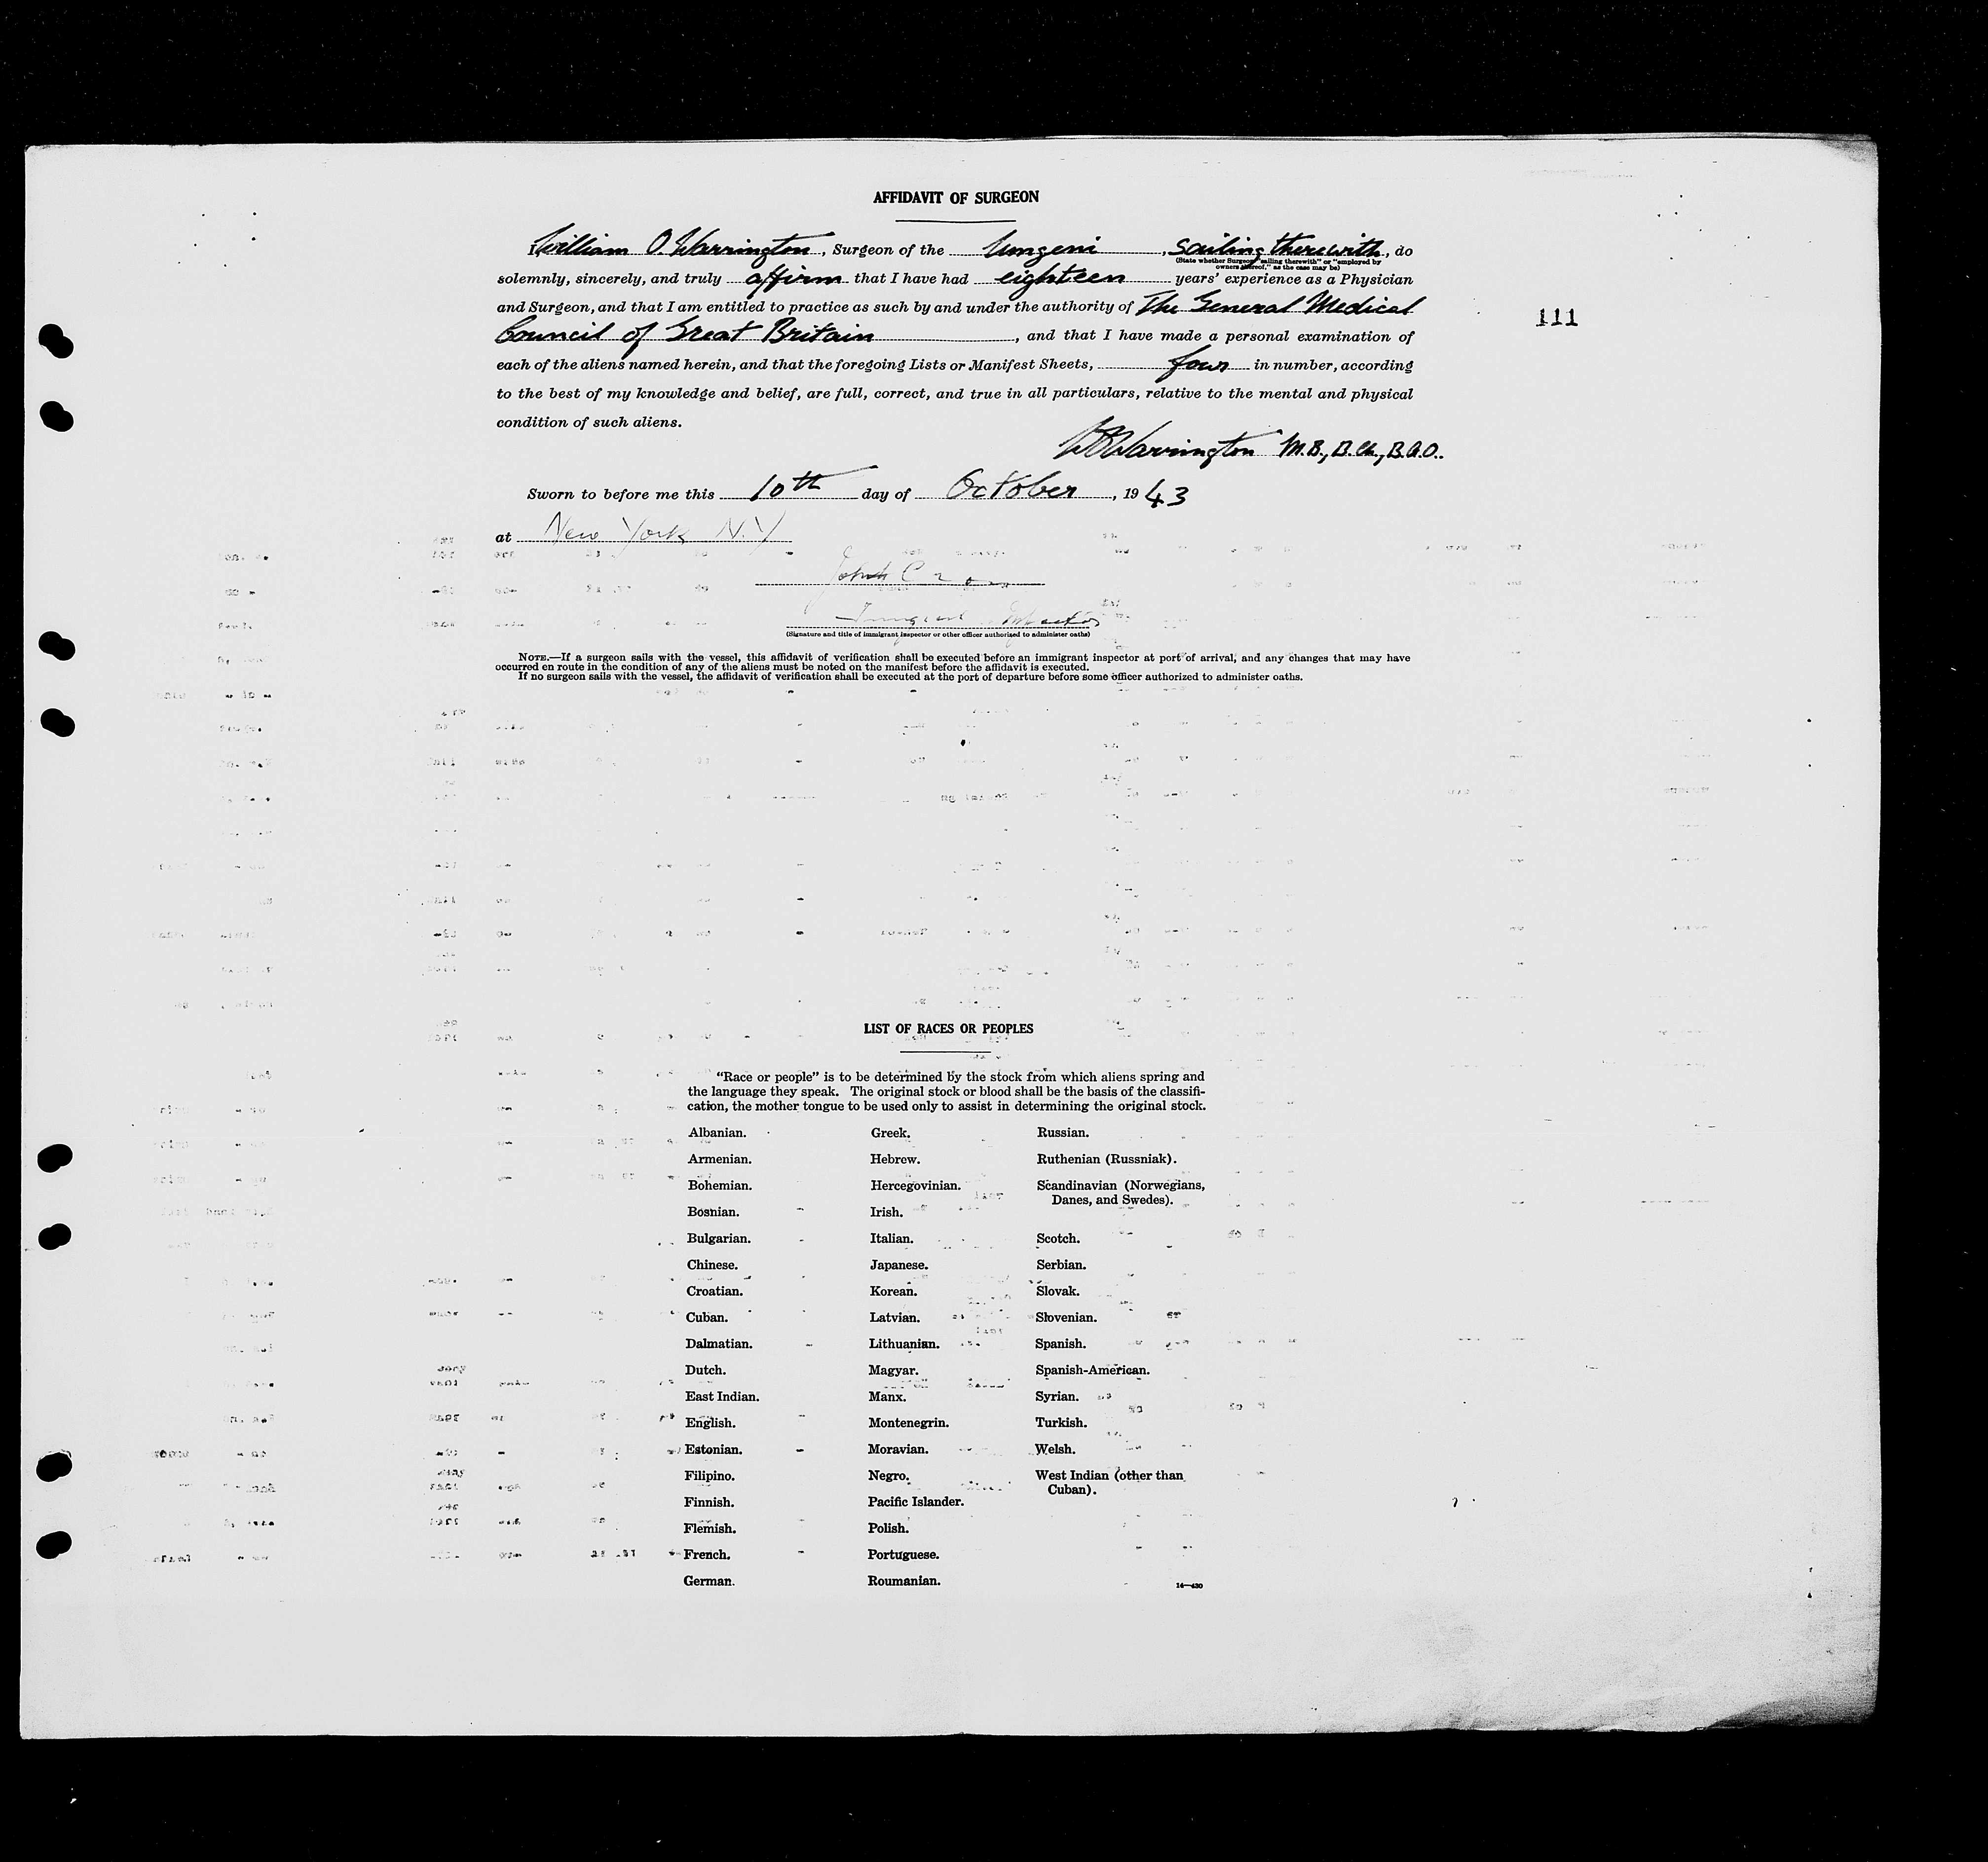 AFFIDAVIT OF SURGEON
I, William O. Warrington, Surgeon of the Umgeni, sailing therewith, do
(State whether Surgeon "sailing therewith" or "employed by
owners thereof," as the case may be)
solemnly, sincerely, and truly affirm that I have had eighteen years' experience as a Physician
and Surgeon, and that I am entitled to practice as such by and under the authority of The General Medical
Council of Great Britain, and that I have made a personal examination of
111
each of the aliens named herein, and that the foregoing Lists or Manifest Sheets, four in number, according
to the best of my knowledge and belief, are full, correct, and true in all particulars, relative to the mental and physical
condition of such aliens.
WOWarrington M.B., B.Ch., B.A.O..
Sworn to before me this 10th day of October, 1943
at New York N.Y
John
(Signature and title of immigrant inspector or other officer authorized to administer oaths)
NOTE.—If a surgeon sails with the vessel, this affidavit of verification shall be executed before an immigrant inspector at port of arrival, and any changes that may have
occurred en route in the condition of any of the aliens must be noted on the manifest before the affidavit is executed.
If no surgeon sails with the vessel, the affidavit of verification shall be executed at the port of departure before some officer authorized to administer oaths.
LIST OF RACES OR PEOPLES
"Race or people" is to be determined by the stock from which aliens spring and
the language they speak. The original stock or blood shall be the basis of the classifi-
cation, the mother tongue to be used only to assist in determining the original stock.
Albanian.
Armenian.
Bohemian.
Bosnian.
Bulgarian.
Chinese.
Croatian.
Cuban.
Dalmatian.
Dutch.
East Indian.
English.
Estonian.
Filipino.
Finnish.
Flemish.
French.
German.
Greek.
Hebrew.
Hercegovinian.
Irish.
Italian.
Japanese.
Korean.
Latvian.
Lithuanian.
Magyar.
Manx.
Montenegrin.
Moravian.
Negro.
Pacific Islander.
Polish.
Portuguese.
Roumanian.
Russian.
Ruthenian (Russniak).
Scandinavian (Norwegians,
Danes, and Swedes).
Scotch.
Serbian.
Slovak.
Slovenian.
Spanish.
Spanish-American.
Syrian.
Turkish.
Welsh.
West Indian (other than
Cuban).
14—430